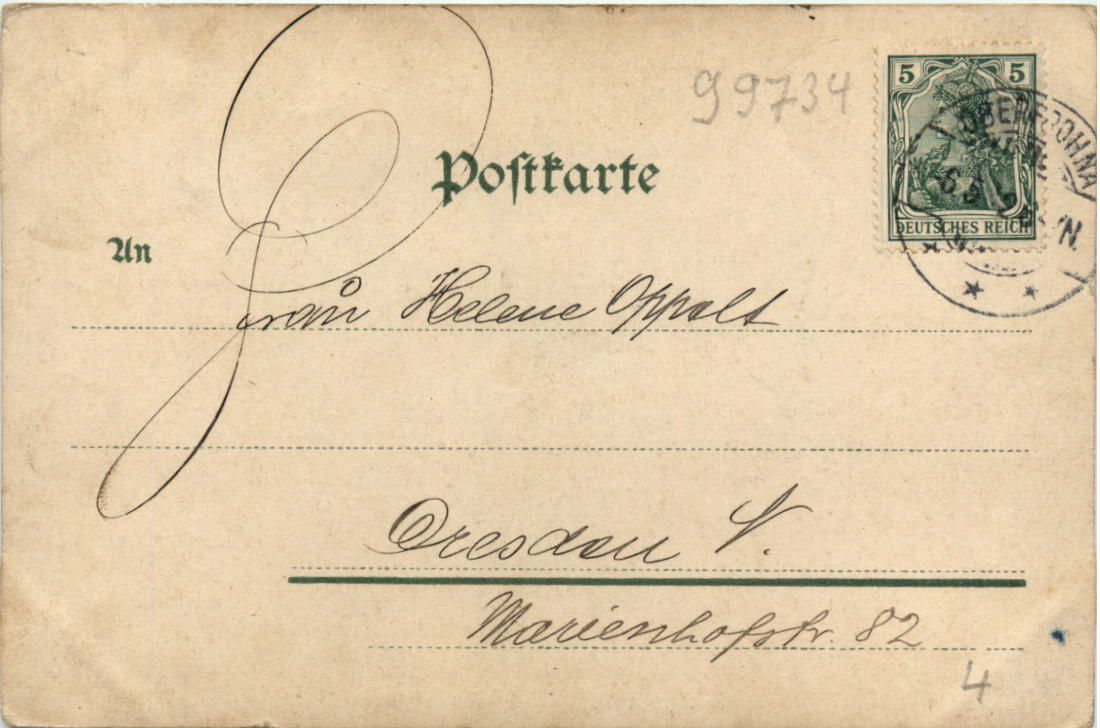 99734
5 5
DEUTSCHES REICH
Postkarte
An
Frau Helene Oppelt
Dresden N.
Marienhofstr. 82
4